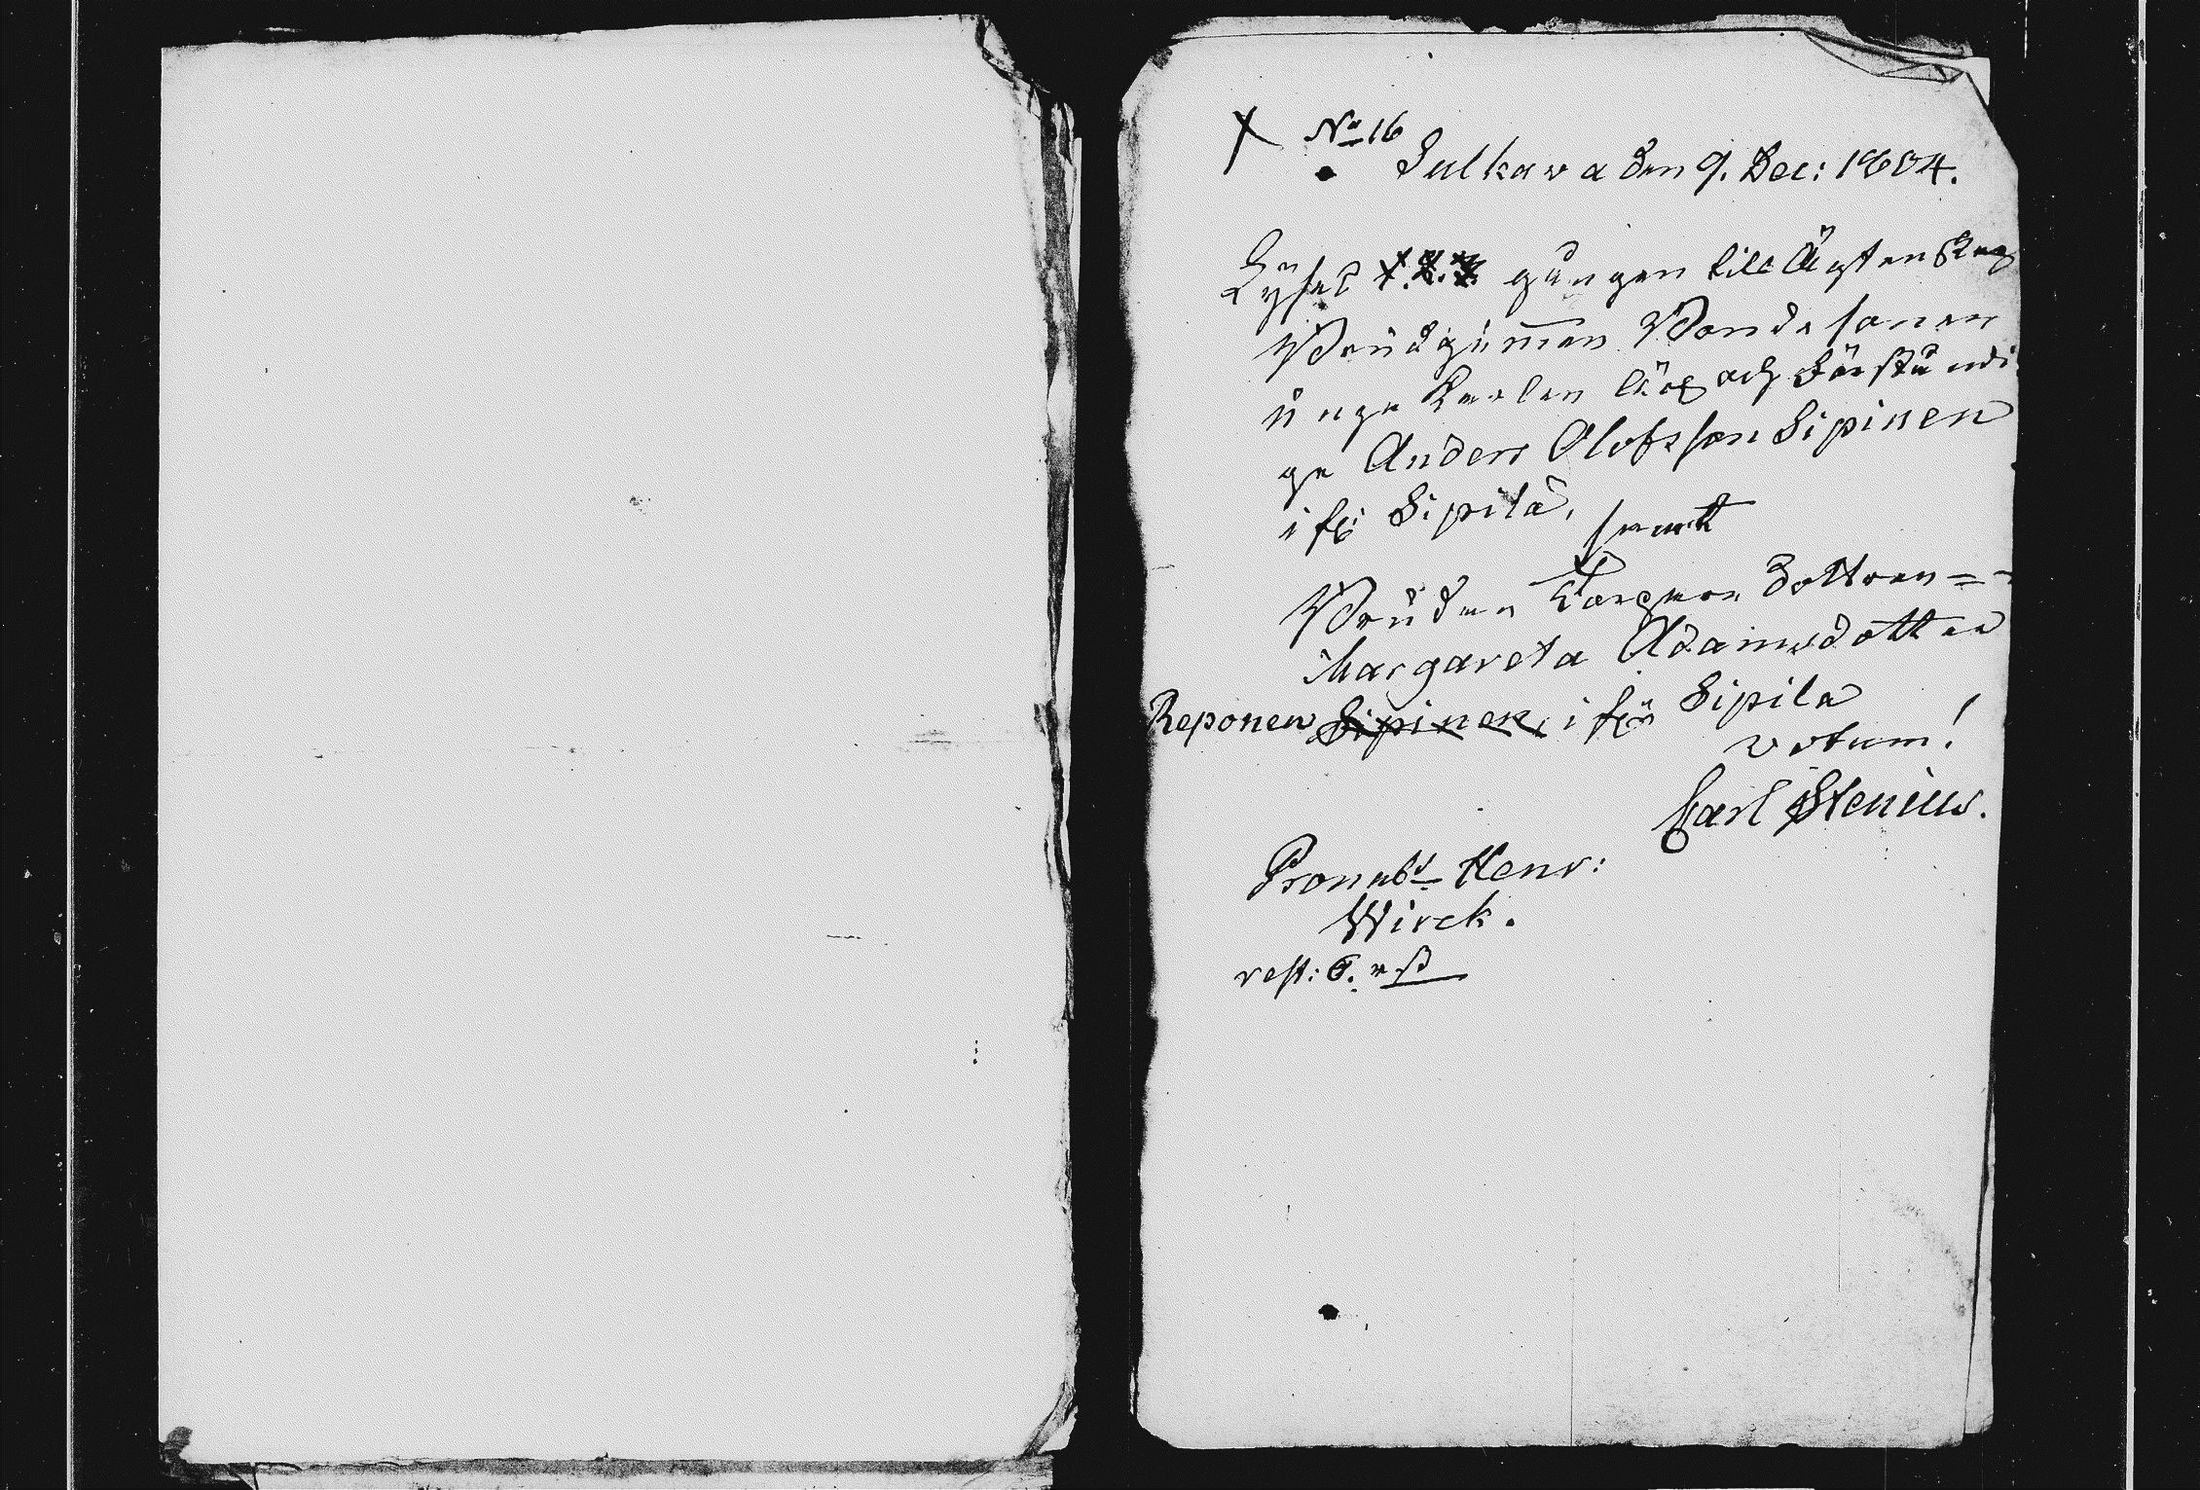 No 16
Sulkawa den 9. Dec: 1804.
Lyses 1. 2. 3. gången till Ägtenskap
Brudgummen Bondesonen
unge Karlen läs och förstånd
ge Anders Olofsson Sipinen
ifr Sipilä,
samt
Bruden Torpare dottren =
Margareta Adamsdotter
Reponen Sipinen, ifrån Sipilä
votum!
Carl Stenius.
Pronubs Henr:
Wirck.
rest: 6. rs